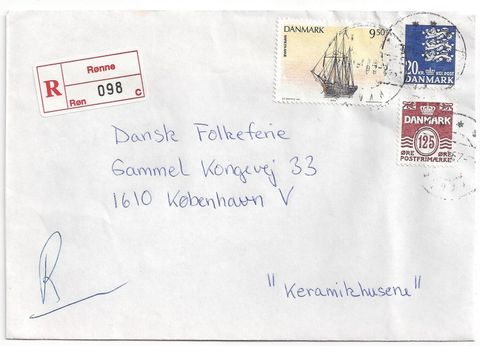 Rønne
R 098
Røn C
DANMARK 9.50
20 KR.
DANMARK
DANMARK
125
ØRE ØRE
POSTFRIMÆRKE
Dansk Folkeferie
Gammel Kongevej 33
1610 København V
R
"Keramikhusene"